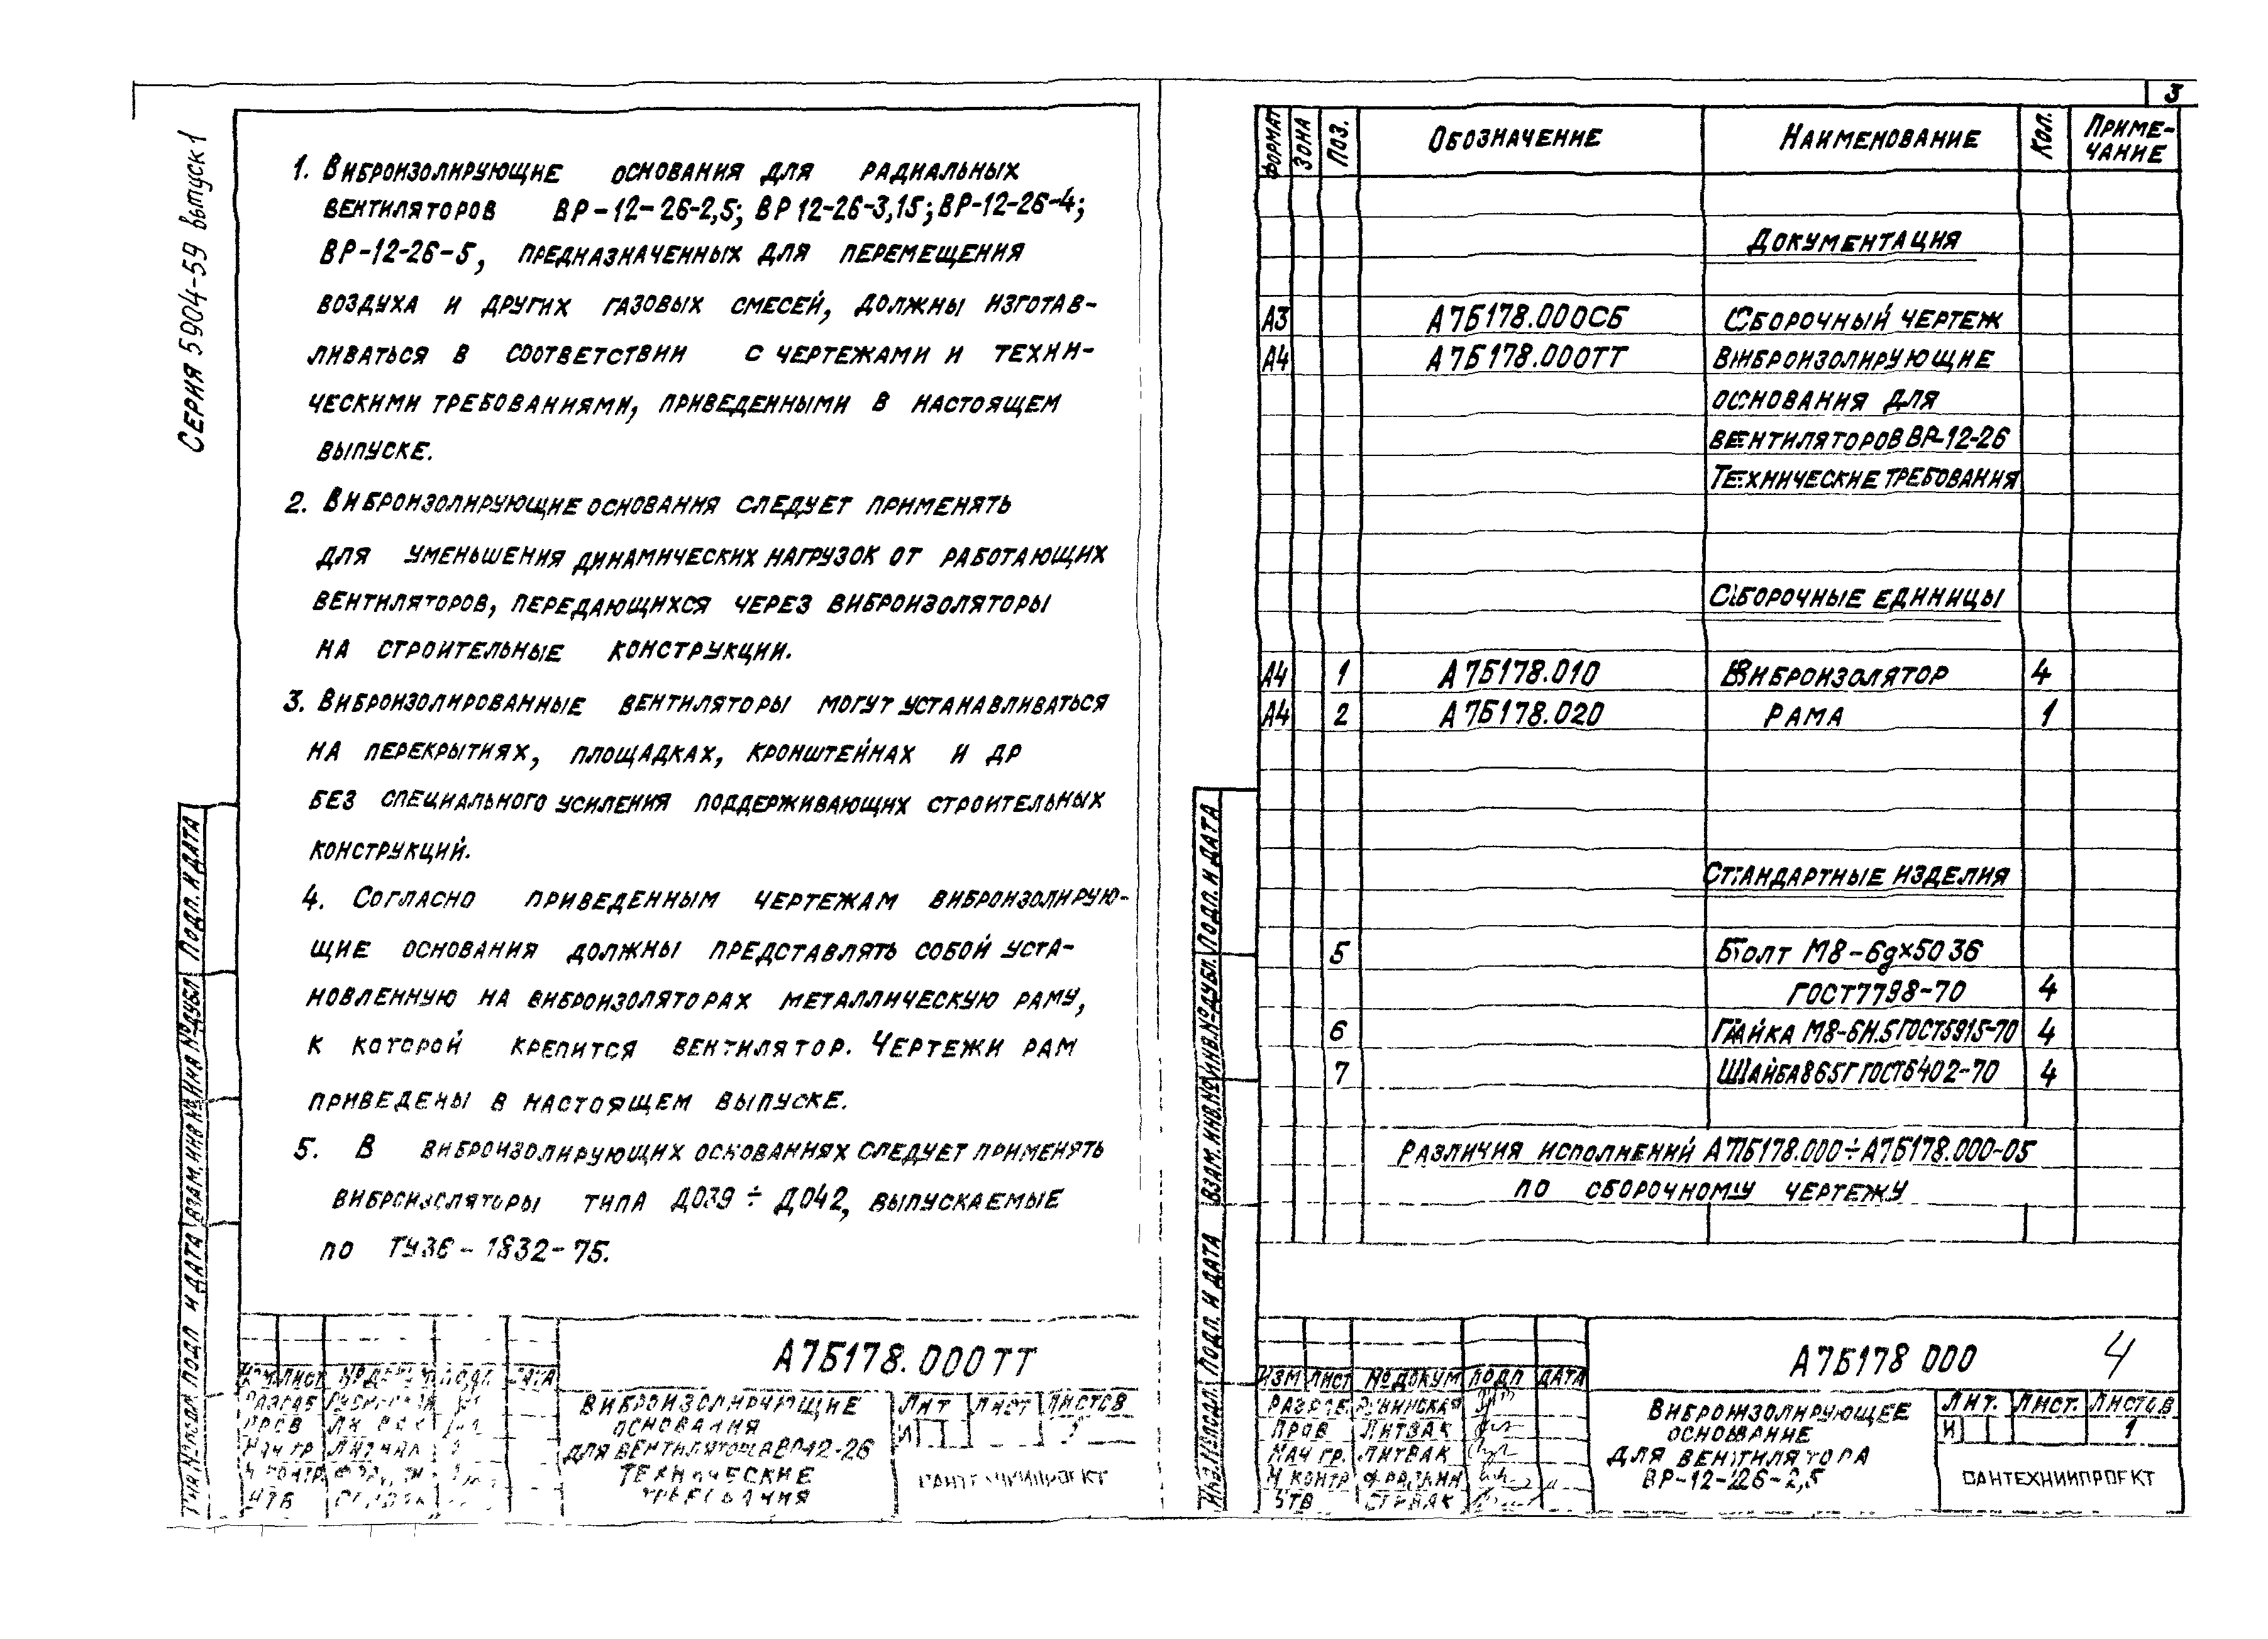 Серия 5904-59 выпуск 1
1. Виброизолирующие основания для радиальных
вентиляторов ВР-12-26-2,5; ВР 12-26-3,15; ВР-12-26-4;
ВР-12-26-5, предназначенных для перемещения
воздуха и других газовых смесей, должны изготав-
ливаться в соответствии с чертежами и техни-
ческими требованиями, приведенными в настоящем
выпуске.
2. Виброизолирующие основания следует применять
для уменьшения динамических нагрузок от работающих
вентиляторов, передающихся через виброизоляторы
на строительные конструкции.
3. Виброизолированные вентиляторы могут устанавливаться
на перекрытиях, площадках, кронштейнах и др
без специального усиления поддерживающих строительных
конструкций.
4. Согласно приведенным чертежам виброизолирую-
щие основания должны представлять собой уста-
новленную на виброизоляторах металлическую раму,
к которой крепится вентилятор. Чертежи рам
приведены в настоящем выпуске.
5. В виброизолирующих основаниях следует применять
виброизоляторы типа Д039 ÷ Д042, выпускаемые
по ТУ36-1832-75.
Подп. и дата
Взам. инв №
подп и дата
А7Б178.000ТТ
Лист
Разраб
Пров
Нач гр
УТВ
Виброизолирующие
основания
для вентиляторов ВР-12-26
Технические
требования
Лит Лист Листов
И
3
Формат Зона Поз. Обозначение Наименование Кол. Приме-
чание
Документация
А3 А7Б178.000СБ Сборочный чертеж
А4 А7Б178.000ТТ Виброизолирующие
основания для
вентиляторов ВР-12-26
Технические требования
Сборочные единицы
А4 1 А7Б178.010 Виброизолятор 4
А4 2 А7Б178.020 Рама 1
Стандартные изделия
5 Болт М8-6gх50 36
ГОСТ7798-70 4
6 Гайка М8-6Н.5ГОСТ5915-70 4
7 Шайба865Г ГОСТ6402-70 4
Различия исполнений А7Б178.000÷А7Б178.000-05
по сборочному чертежу
Подп. и дата
Инв.№дубл.
Взам. инв.№
Подп. и дата
Инв.№подл.
А7Б178 000 4
Изм Лист №докум подп дата
Пров Литвак
Нач гр. Литвак
Н контр
Утв Спивак
Виброизолирующее
основание
для вентилятора
ВР-12-26-2,5
Лит. Лист. Листов
И 1
Сантехниипроект